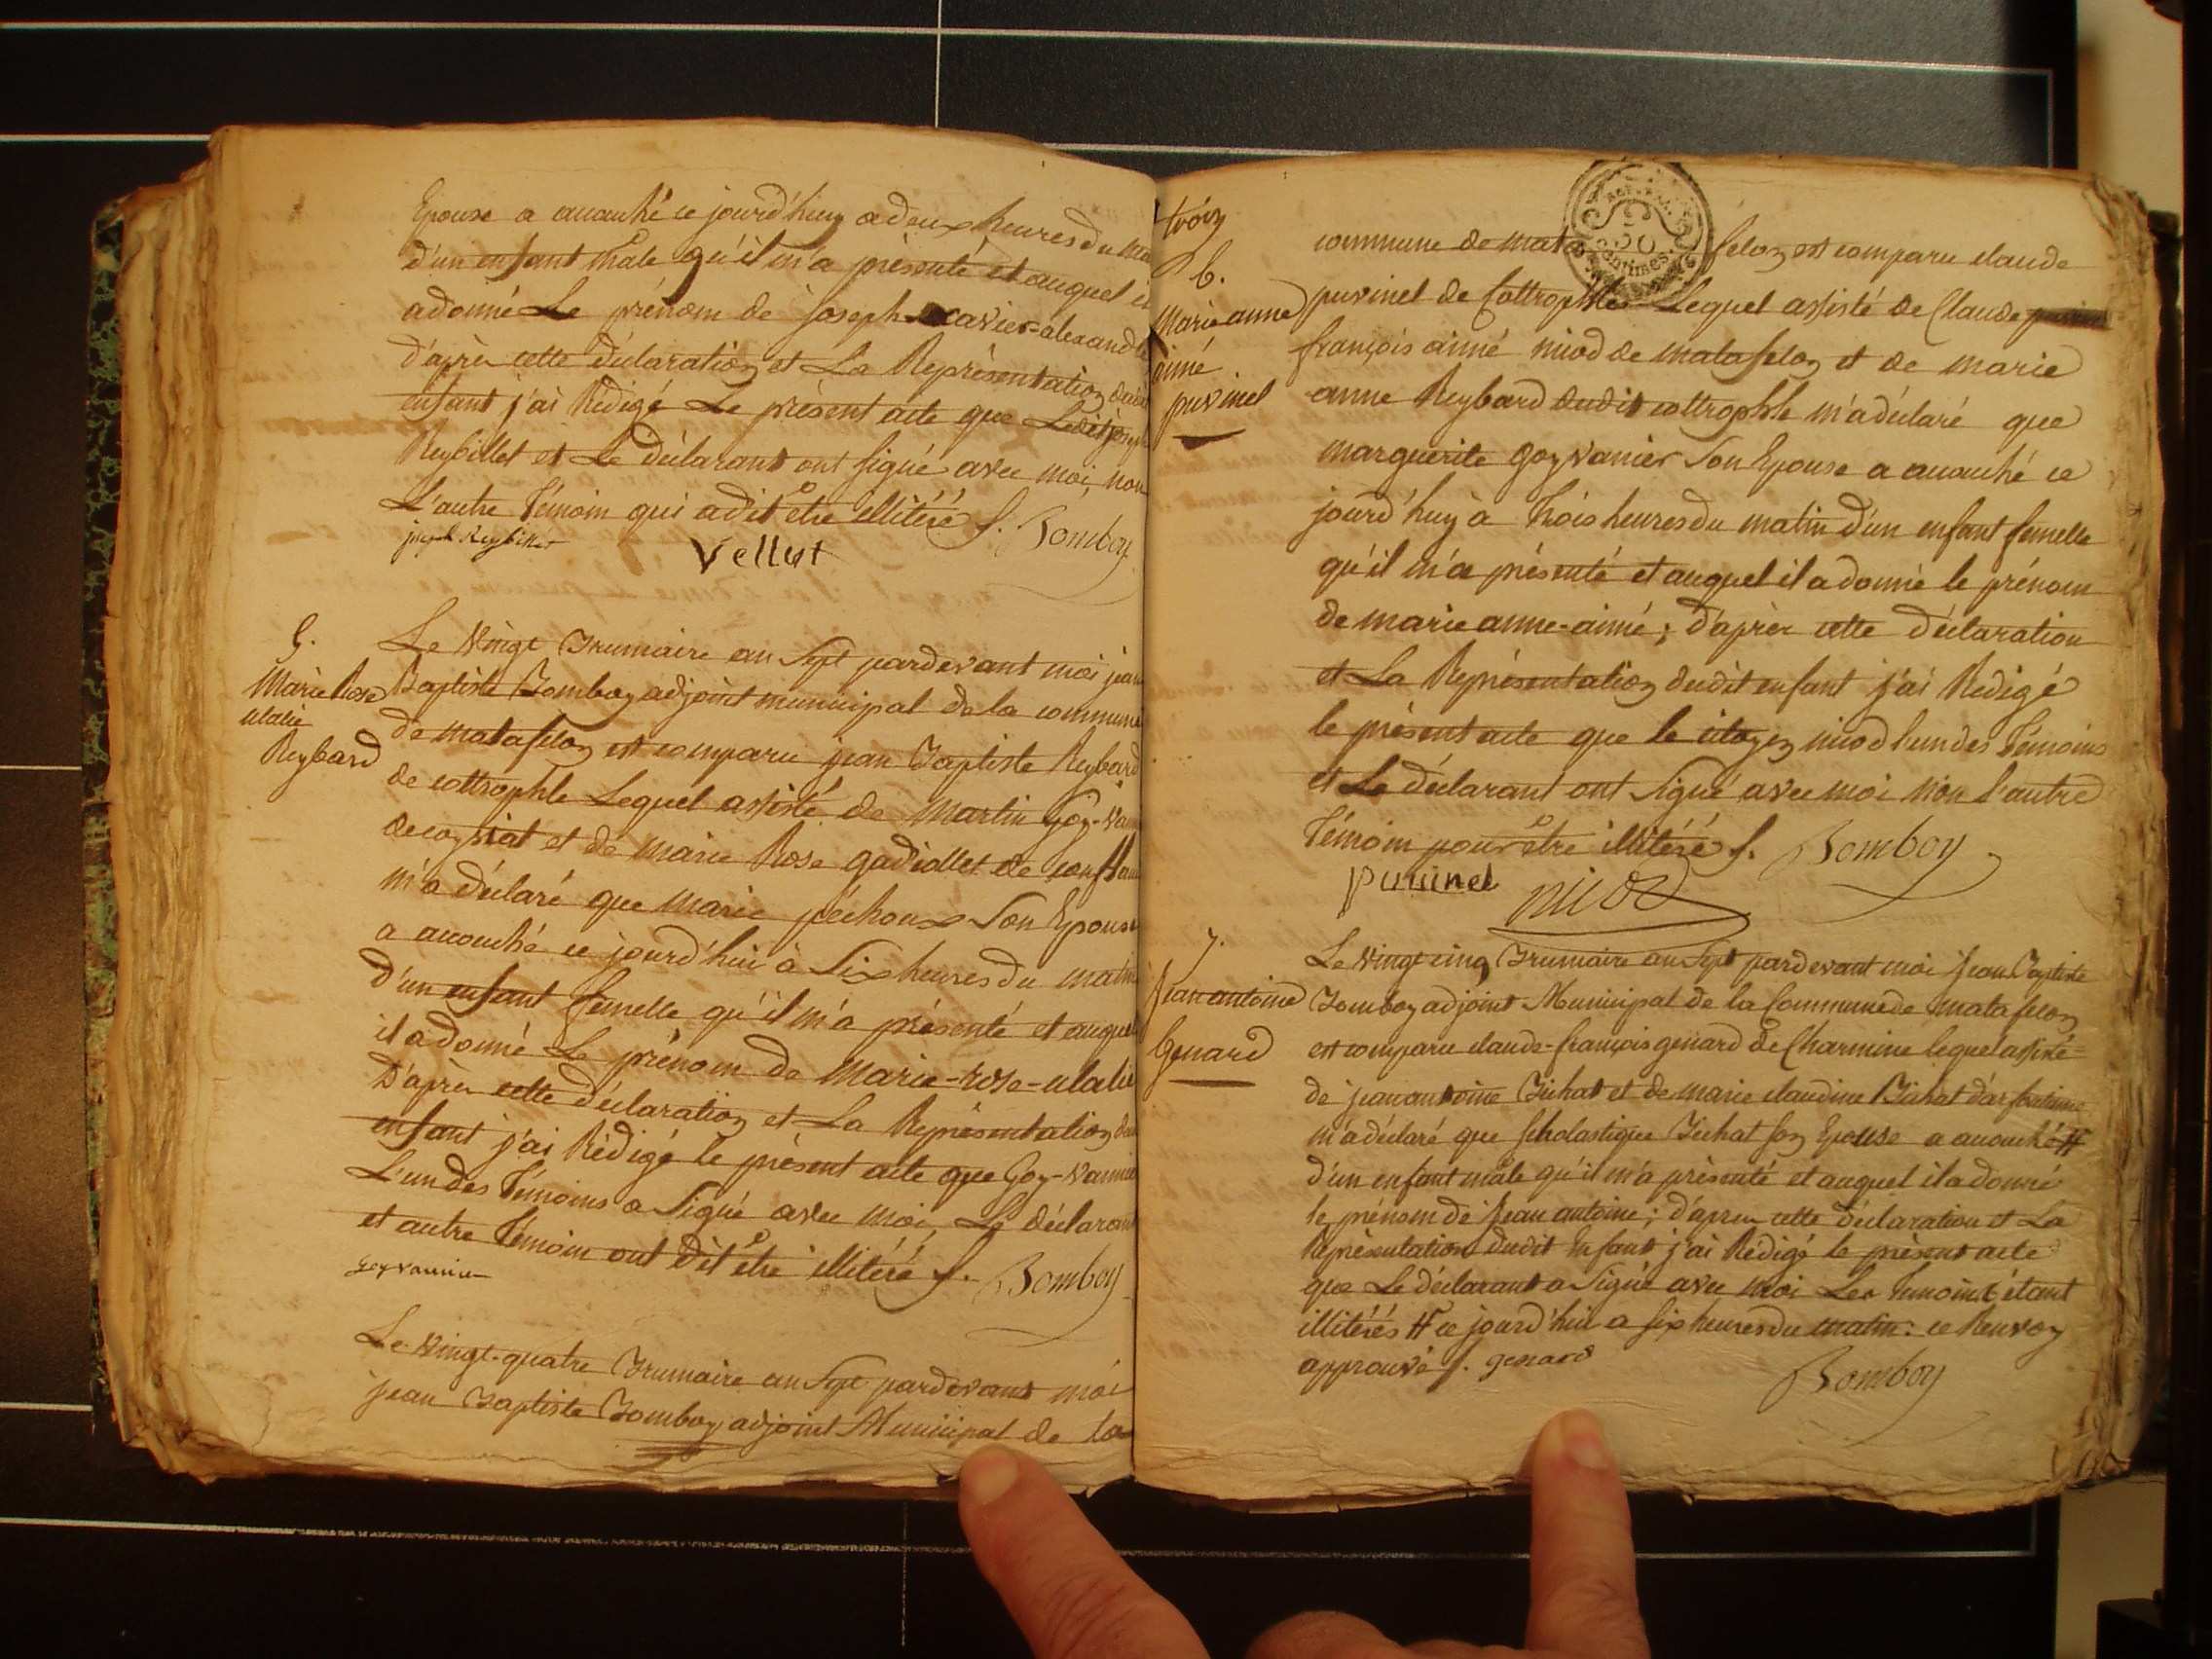 Epouse a accouché ce jourd'huy a deux heures du
d'un enfant mâle qu'il m'a présenté et auquel il
a donné Le prénom de joseph xavier=alexand
d'après cette déclaration et La Représentation dudit
enfant j'ai Rédigé Le présent acte que Ledit joseph
Reybillet et Le déclarant ont signé avec moi, non
L'autre Témoin qui a dit être illitéré
joseph Reybillet
Vellut
Bomboy
5.
Marie Rose
ulalie
Reybard
Le Vingt Brumaire an Sept pardevant moi jean
Baptiste Bomboy adjoint municipal de la commune
de matafelon est comparu jean Baptiste Reybard
de cottrophle Lequel assisté de Martin Goy-
de coysiat et de Marie Rose gadiollet de
m'a déclaré que Marie péchoux Son Epouse
a accouché ce jourd'hui à Six heures du matin
d'un enfant femelle qu'il m'a présenté et auquel
il a donné Le prénom de Marie-rose-ulalie
D'après cette déclaration et La Représentation
enfant j'ai Rédigé le présent acte que Goy-Vannier
L'un des Témoins a Signé avec moi, Le déclarant
et autre Témoin ont dit être illitéré
goyvannier
Bomboy
Le Vingt-quatre Brumaire an Sept pardevant moi
jean Baptiste Bomboy adjoint Municipal de la
trois
6.
Marie anne
aimé
puvinel
commune de mata felon est comparu claude
50
centimes
puvinel de Cottrophle Lequel assisté de Claude
françois aimé niod de matafelon et de marie
anne Reybard dudit cottrophle m'a déclaré que
marguerite goyvanier Son Epouse a accouché ce
jourd'huy à Trois heures du matin d'un enfant femelle
qu'il m'a présenté et auquel il a donné le prénom
de marie anne-aimé; d'après cette déclaration
et La Représentation dudit enfant j'ai Rédigé
le présent acte que le citoyen niod l'un des Témoins
et Le déclarant ont Signé avec moi non l'autre
Témoin pour être illitéré
Bomboy
puvinel
niod
7.
jean antoine
Genard
Le Vingt cinq Brumaire an Sept pardevant moi Jean Baptiste
Bomboy adjoint Municipal de la Commune de matafelon
est comparu claude-françois genard de Charmine lequel assisté
de jean antoine Bichat et de marie claudine Bichat
m'a déclaré que scholastique Bichat son Epouse a accouché #
d'un enfant mâle qu'il m'a présenté et auquel il a donné
le prénom de Jean antoine; d'après cette déclaration et La
Représentation dudit enfant j'ai Rédigé le présent acte
que Le déclarant a Signé avec moi Les Témoins étant
illitérés # ce jourd'hui a six heures du matin: ce Renvoy
approuvé genard
Bomboy